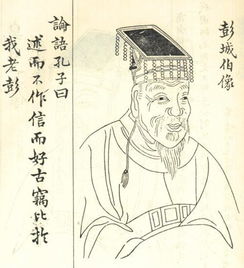 彭城伯像
論語孔子曰
述而不作信而好古竊比於
我老彭